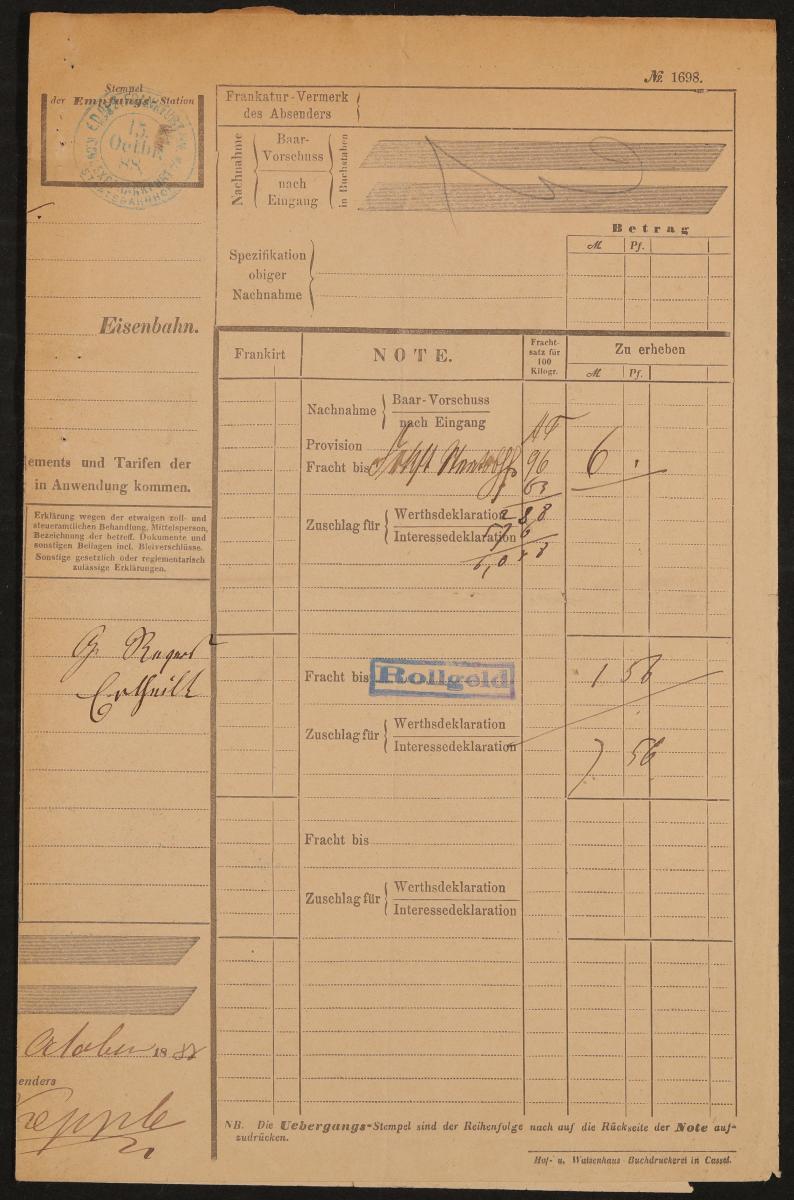 № 1698.
Stempel
der Empfangs-Station
15.
Octbr.
88
Eisenbahn.
ements und Tarifen der
in Anwendung kommen.
Erklärung wegen der etwaigen zoll- und
steueramtlichen Behandlung, Mittelsperson,
Bezeichnung der betreff. Dokumente und
sonstigen Beilagen incl. Bleiverschlüsse.
Sonstige gesetzlich oder reglementarisch
zulässige Erklärungen.
Ertheilt
October 1888
enders
Frankatur-Vermerk
des Absenders
Nachnahme
Baar-
Vorschuss
nach
Eingang
in Buchstaben
Betrag
M Pf.
Spezifikation
obiger
Nachnahme
Frankirt
NOTE.
Fracht-
satz für
100
Kilogr.
Zu erheben
M Pf.
Nachnahme Baar-Vorschuss
nach Eingang
Provision
Fracht bis 96 6
63
Zuschlag für Werthsdeklaration 288
Interessedeklaration 576
Fracht bis Rollgeld 1 56
Zuschlag für Werthsdeklaration
Interessedeklaration 7 56
Fracht bis
Zuschlag für Werthsdeklaration
Interessedeklaration
NB. Die Uebergangs-Stempel sind der Reihenfolge nach auf die Rückseite der Note auf-
zudrücken.
Hof- u. Waisenhaus Buchdruckerei in Cassel.